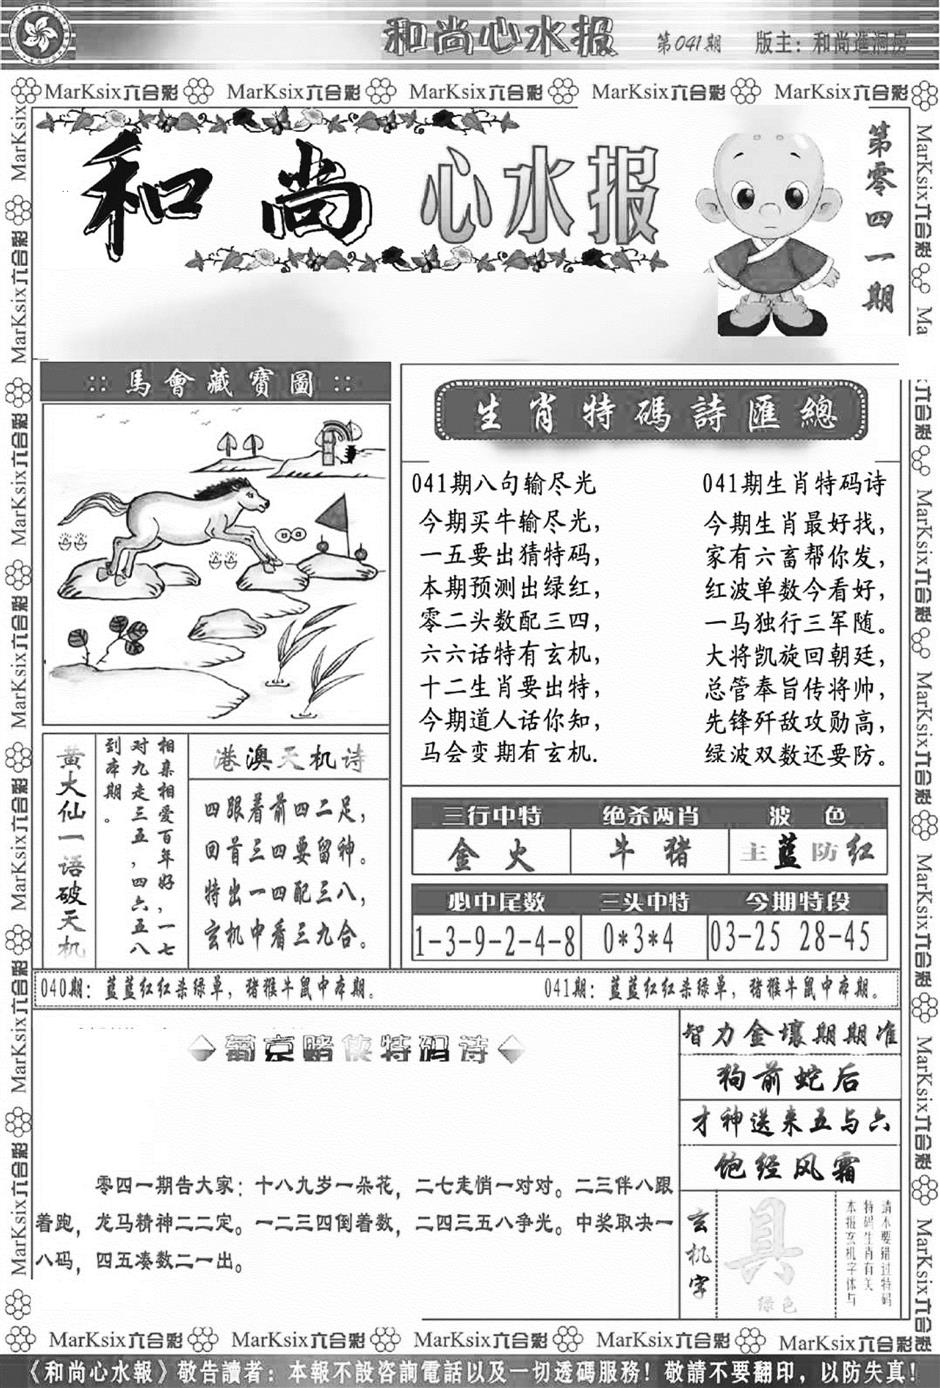 和尚心水报 第041期 版主：和尚进洞房
MarKsix六合彩 MarKsix六合彩 MarKsix六合彩 MarKsix六合彩 MarKsix六合彩
和尚心水报
第零四一期
馬會藏寶圖
生肖特碼詩匯總
041期八句输尽光
今期买牛输尽光，
一五要出猜特码，
本期预测出绿红，
零二头数配三四，
六六话特有玄机，
十二生肖要出特，
今期道人话你知，
马会变期有玄机.
041期生肖特码诗
今期生肖最好找，
家有六畜帮你发，
红波单数今看好，
一马独行三军随。
大将凯旋回朝廷，
总管奉旨传将帅，
先锋歼敌攻勋高，
绿波双数还要防。
黄大仙一语破天机
相亲相爱百年好，一七
对九走三五，四六五八
到本期。
港澳天机诗
四眼着前四二足，
回首三四要留神。
特出一四配三八，
玄机中看三九合。
三行中特 绝杀两肖 波色
金火 牛猪 主蓝防红
必中尾数 三头中特 今期特段
1-3-9-2-4-8 0*3*4 03-25 28-45
040期：蓝蓝红红杀绿单，猪猴牛鼠中本期。 041期：蓝蓝红红杀绿单，猪猴牛鼠中本期。
葡京赌侠特码诗
零四一期告大家：十八九岁一朵花，二七走悄一对对。二三伴八跟
着跑，龙马精神二二定。一二三四倒着数，二四三五八争光。中奖取决一
八码，四五凑数二一出。
智力金壤期期准
狗前蛇后
才神送来五与六
饱经风霜
玄机字
具
绿色
请不要错过特码
特码生肖有关
本报玄机字体与
MarKsix六合彩 MarKsix六合彩 MarKsix六合彩 MarKsix六合彩 MarKsix六合彩
《和尚心水報》敬告讀者：本報不設咨詢電話以及一切透碼服務！敬請不要翻印，以防失真！